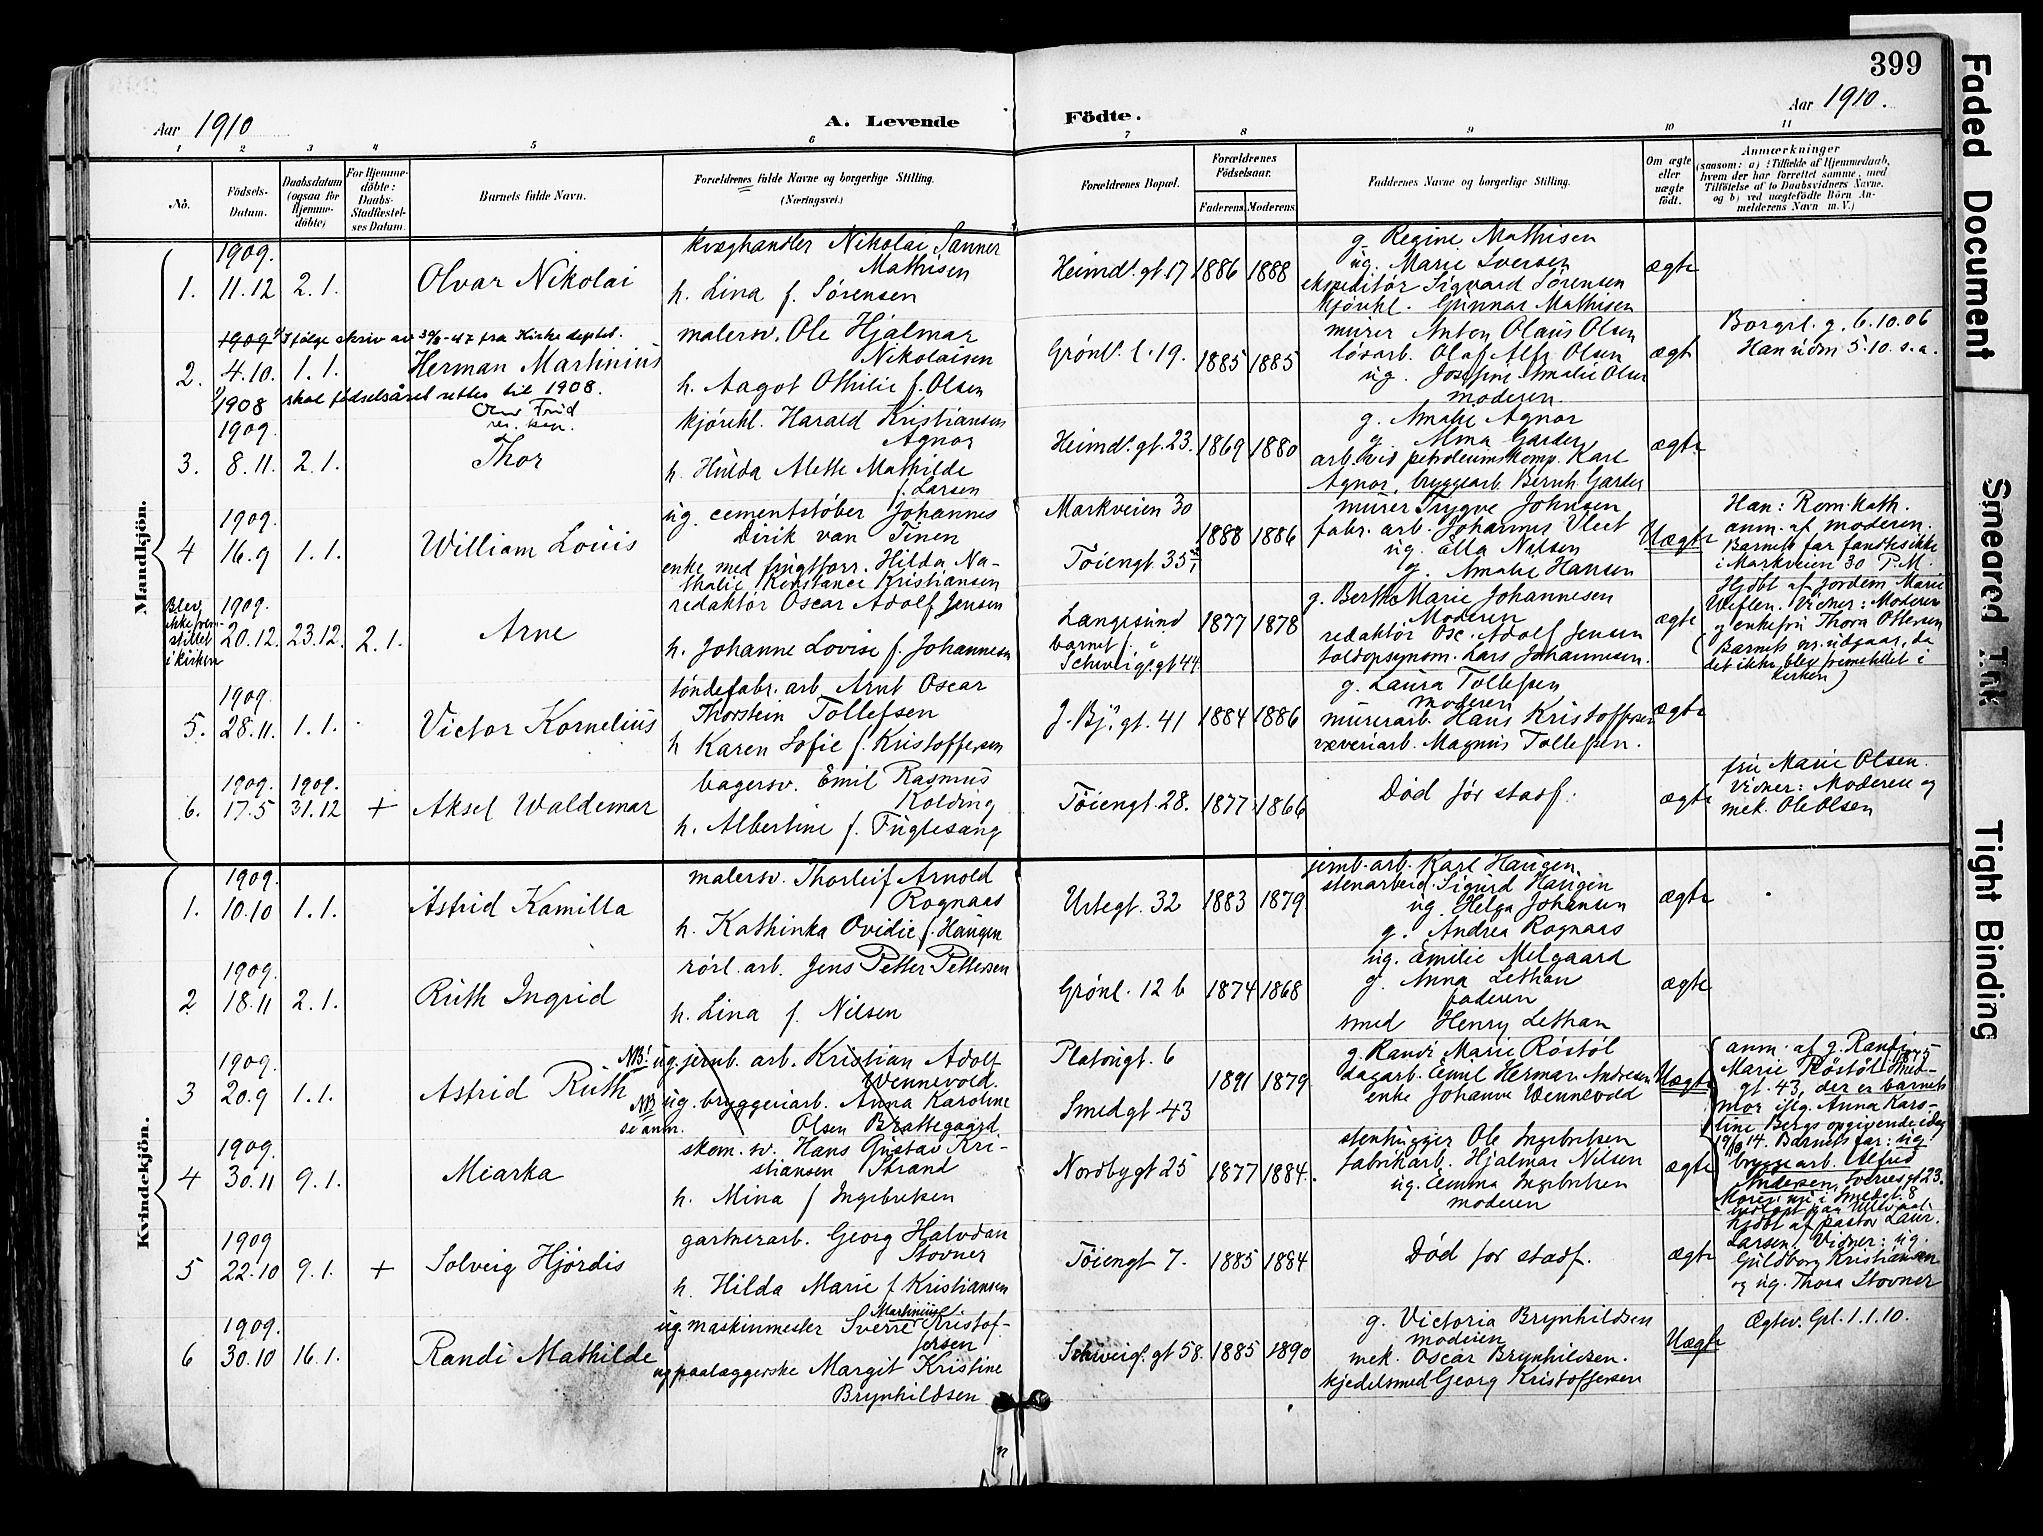 399
Aar 1910
A. Levende
Födte.
Aar 1910.
1 2 3 4 5 6 7 8 9 10 11
No.
Födsels-
Datum.
Daabsdatum
(ogsaa for
Hjemme-
döbte)
For Hjemme-
döbte:
Daabs-
Stadfæstel-
ses Datum.
Barnets fulde Navn.
Forældrenes fulde Navne og borgerlige Stilling.
(Næringsvei.)
Forældrenes Bopæl.
Forældrenes
Födselsaar.
Faderens. Moderens.
Faddernes Navne og borgerlige Stilling.
Om ægte
eller
uægte
födt.
Anmærkninger
(saasom: a) i Tilfælde af Hjemmedaab,
hvem der har forrettet samme, med
Tilföielse af to Daabsvidners Navne,
og b) ved uægtefödte Börn An-
melderens Navn m. V.)
Mandkjön.
1. 1909. 11.12 2.1.
Olvar Nikolai
kvæghandler Nikolai Sanner
Mathisen
h. Lina f. Sørensen
Heimdl.gt.17 1886 1888
g. Regine Mathisen
ug. Marie Iversen
ekspeditør Sigvard Sørensen
kjørekl. Gunnar Mathisen
ægte
2. 1909 4.10. 1.1.
1) Ifølge skriv av 30/8-47 fra Kirkedeptet.
Herman Martinius
skal fødselsåret rettes til 1908.
1) 1908
res. kap.
malersv. Ole Hjalmar
Nikolaisen
h. Aagot Othilie f. Olsen
Grønl. l. 19. 1885 1885
murer Anton Olaus Olsen
løsarb. Olaf Alfr. Olsen
ug. Josefine Amalie Olsen
moderen.
ægte
Borgerl. g. 6.10.06
Han udm 5.10. s.a.
3. 1909. 8.11. 2.1.
Thor
kjørekl. Harald Kristiansen
Agnor
h. Hulda Alette Mathilde
f. Larsen
Heimdl.gt.23. 1869 1880
g. Amalie Agnor
g. Alma Garder
arb. ved petroleumskomp. Karl
Agnor, bryggearb. Bernh. Garder
ægte
4 1909. 16.9 1.1.
William Louis
ug. cementstøber Johannes
Dirik van Tinen
enke med frugtforr. Hilda Na-
thalie Konstance Kristiansen
Markveien 30
Tøiengt. 35
1888 1886
murer Trygve Johnsen
fabr. arb. Johannes Vleet
ug. Ella Nilsen
g. Amalie Hansen
Uægte
Han: Rom. kath.
anm. af moderen.
Barnets far fandtes ikke
i Markveien 30 T.M.
Blev
ikke frem-
stillet
i kirken
1909. 20.12. 23.12. 2.1.
Arne
redaktør Oscar Adolf Jensen
h. Johanne Lovise f. Johannesen
Langesund
barnet f. i
Schweig.gt 44
1877 1878
g. Berthe Marie Johannesen
Moderen
redaktør Osc. Adolf Jensen
toldopsynsm. Lars Johannesen.
ægte
Hjdøbt af jordem. Marie
Weflen. Vidner: Moderen
og enkefru Thora Ottersen
(Barnets nr. udgaar, da
det ikke blev fremstillet i
kirken)
5. 1909. 28.11. 1.1.
Victor Kornelius
tøndefabr. arb. Arnt Oscar
Thorstein Tollefsen
h Karen Sofie f. Kristoffersen
J. Bj. gt. 41 1884 1886
g. Laura Tollefsen
moderen
murerarb. Hans Kristoffersen
væveriarb. Magnus Tollefsen.
ægte
6. 1909. 17.5 1909. 31.12 +
Aksel Waldemar
bagersv. Emil Rasmus
Kolding
h. Albertine f. Fuglesang
Tøiengt. 28. 1877 1866
Død før stadf.
ægte
fru Marie Olsen.
Vidner: Moderen og
mek. Ole Olsen
Kvindekjön.
1. 1909. 10.10 1.1.
Astrid Kamilla
malersv. Thorleif Arnold
Rognaas
h. Kathinka Ovidie f. Haugen
Urtegt. 32 1883 1879
jernb. arb. Karl Haugen,
stenarbeid. Sigurd Haugen
ug. Helga Johansen
g. Andrea Rognaas
ægte
2 1909. 18.11 2.1.
Ruth Ingrid
rørl. arb. Jens Petter Pettersen
h. Lina f. Nilsen
Grønl. 12 b 1874 1868
ug. Emilie Melgaard
g. Anna Lethan
faderen
smed Henry Lethan
ægte
3 1909. 20.9 1.1.
Astrid Ruth
NB! ug. jernb. arb. Kristian Adolf
Wennevold.
NB ug. bryggeriarb. Anna Karoline
se anm. Olsen Brattegaard
Platousgt. 6
Smedgt. 43
1891 1879
g. Randi Marie Røstøl
dagarb. Emil Herman Andresen
enke Johanne Wennevold
Uægte
anm. af g. Randi
Marie Røstøl f. 1875 Smed-
gt. 43, der er barnets
mor iflg. Anna Karo-
line Bergs opgivende idag
19/10 14. Barnets far: ug.
bryggearb. Alfred
Andersen, Sverresgt 23.
4 1909. 30.11 9.1.
Mearka
skom. sv. Hans Gustav Kri-
stiansen Strand
h. Mina f Ingebretsen
Nordbygt 25 1877 1884
stenhugger Ole Ingebretsen
fabrikarb. Hjalmar Nilsen
ug. Emma Ingebretsen
moderen
ægte
5 1909 22.10 9.1. +
Solveig Hjørdis
gartnerarb. Georg Halvdan
Stovner
h. Hilda Marie f. Kristiansen
Tøiengt 7. 1885 1884
Død før stadf.
ægte
hjdøbt af pastor Laur.
Larsen. Vidner: ug.
Guldborg Kristiansen
og ug. Thora Stovner
6 1909. 30.10 16.1.
Randi Mathilde
ug. maskinmester Sverre Martinius Kristof-
fersen
ug paalæggerske Margit Kristine
Brynhildsen
Schweig. gt 58. 1885 1890
g. Victoria Brynhildsen
moderen
mek. Oscar Brynhildsen.
kjedelsmed Georg Kristoffersen
Uægte
Ægtev. Grl. 1.1.10.
Faded Document
Smeared Ink
Tight Binding